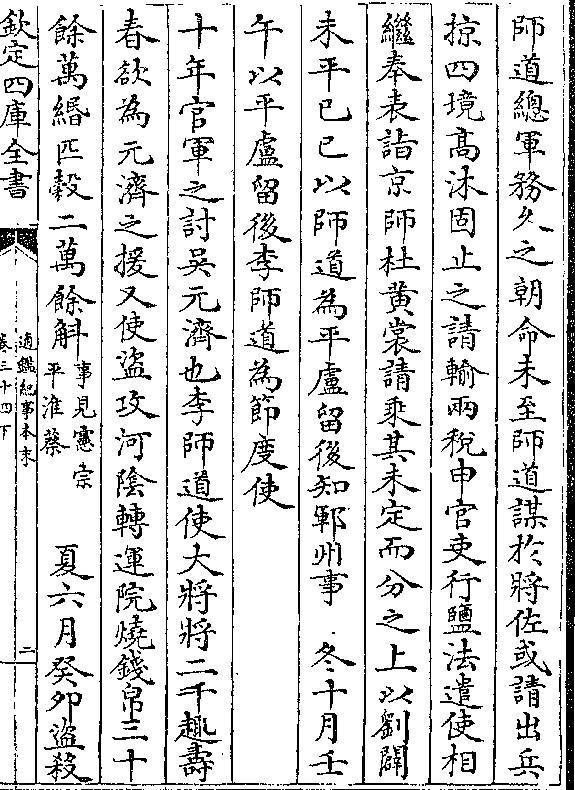 師道總軍務久之朝命未至師道謀於將佐或請出兵
掠四境高沐固止之請輸兩稅申官吏行鹽法遣使相
繼奉表詣京師杜黄裳請乘其未定而分之上以劉闢
未平己巳以師道為平盧留後知鄆州事　冬十月壬
午以平盧留後李師道為節度使
十年官軍之討吳元濟也李師道使大將將二千趣壽
春欲為元濟之援又使盜攻河陰轉運院燒錢帛三十
餘萬緡匹穀二萬餘斛事見憲宗平淮蔡　夏六月癸卯盜殺
欽定四庫全書
通鑑紀事本末
卷三十四下
二